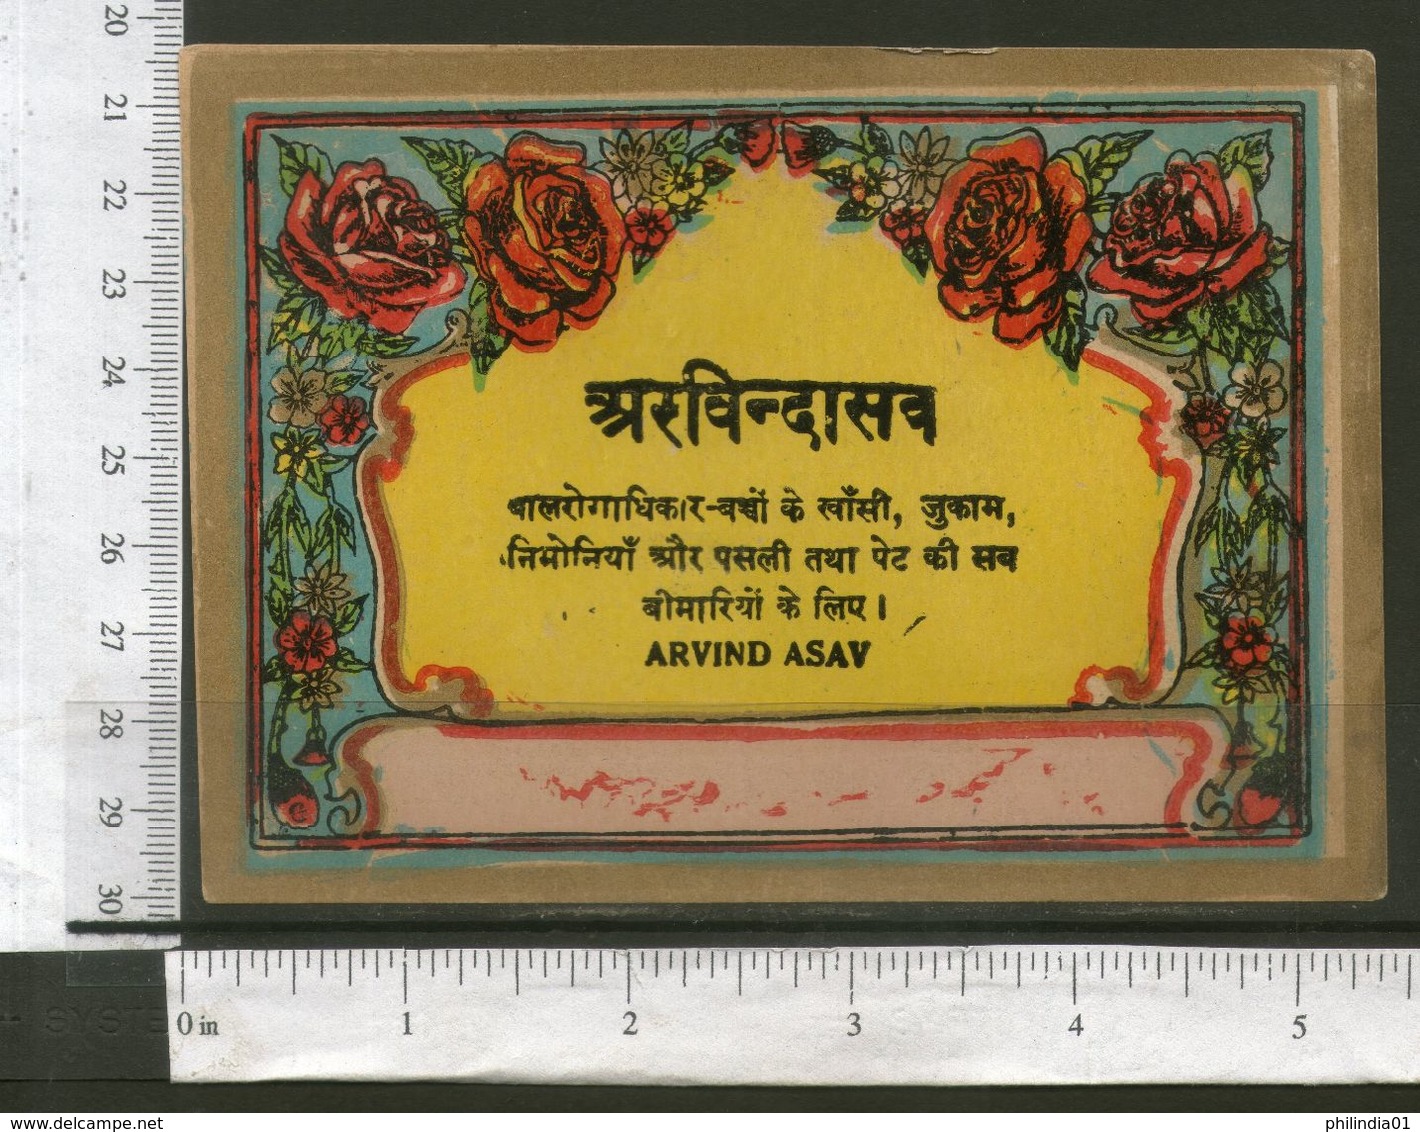 20
21
22
23
24
25
26
27
28
29
30
अरविन्दासव
बालरोगाधिकार-बच्चों के खाँसी, जुकाम,
निमोनियाँ और पसली तथा पेट की सब
बीमारियों के लिए।
ARVIND ASAV
SYSTE
0 in 1 2 3 4 5
www.delcampe.net
philindia01